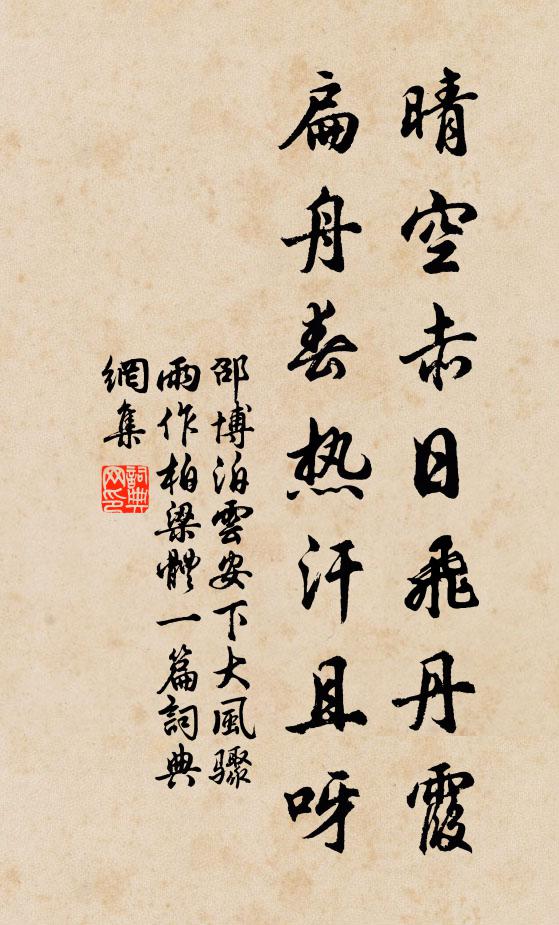 晴空赤日飛丹霞
扁舟春热汗且呀
邵博泊雲安下大風驟
雨作柏梁體一篇詞典
網集
詞典網印